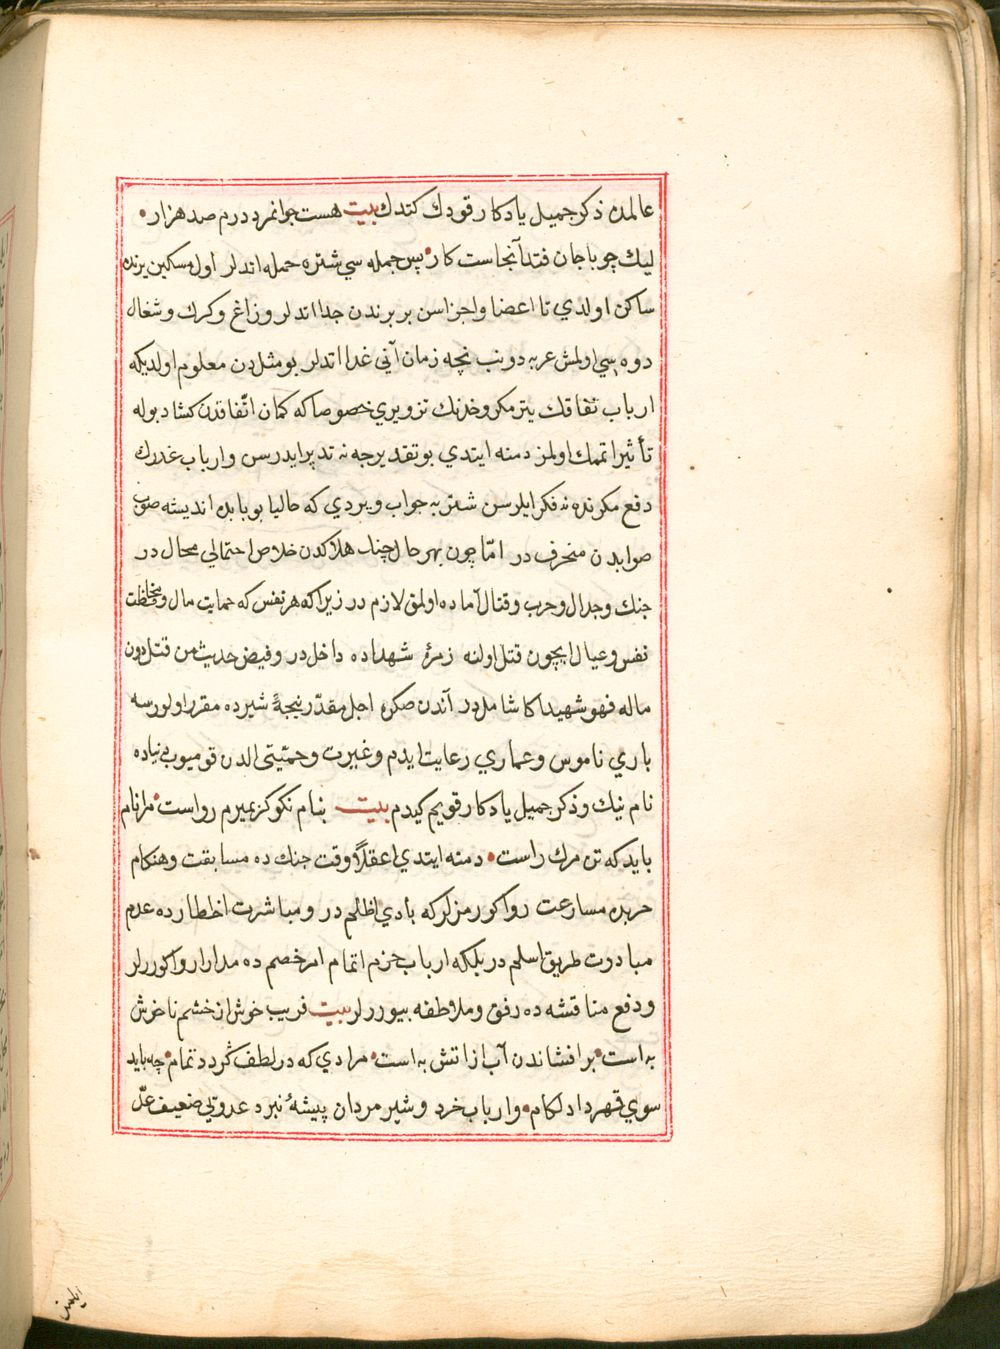 عالمده ذكر جميل يادكار قودك كتدك بيت هست جوانمرد درم صد هزار
ليك چو با جان فتد آنجاست كار پس جمله سي شتره حمله اتدلر اول مسكين يرنده
ساكن اولدي تا اعضا واجزاسن بر برندن جدا اتدلر وزاغ وكرك وشغال
دوه سي اولمش عربه دونب نچه زمان آني غدا اتدلر بو مثلدن معلوم اولديكه
ارباب نفاقك يتر مكر وخدنك تزويري خصوصا كه كمان اتّفاقدن كشاد بوله
تأثير اتمك اولمز دمنه ايتدي بو تقديرجه نه تدبير ايدرسن وارباب غدرك
دفع مكرنده نه فكر ايلرسن شتربه جواب ويردي كه حاليا بو بابده انديشه صوب
صوابدن منحرف در امّا چون بهر حال چنك هلاكدن خلاص احتمالي محال در
جنك وجدال وحرب وقتال آماده اولمق لازم در زيرا كه هر نفس كه حمايت مال ومحافظت
نفس وعيال ايچون قتل اولنه زمرۀ شهداده داخل در وفيض حديث من قتل دون
ماله فهو شهيد اكا شامل در آندن صكره اجل مقدّر پنجۀ شيرده مقرر اولورسه
باري ناموس وعماري رعايت ايدم وغيرت وحمّيتي الدن قوميوب دنياده
نام نيك وذكر جميل يادكار قويم كيدم بيت بنام نكو كر بميرم رواست مرا نام
بايد كه تن مرك راست دمنه ايتدي اعقلا وقت جنك ده مسابقت وهنكام
حربده مسارعت روا كورمزلر كه بادي اظلم در ومباشرت اخطارده عدم
مبادرت طريق اسلم در بلكه ارباب حزم اتمام امر خصم ده مدارا روا كوررلر
ودفع مناقشه ده رفق وملاطفه بيوررلر بيت فريب خوش از خشم ناخوش
به است بر افشاندن آب از اتش به است مرادي كه در لطف كردد تمام چه بايد
سوي قهر داد لكام وارباب خرد وشير مردان پيشۀ نبرد عدوّي ضعيف عدّ
ايلمز